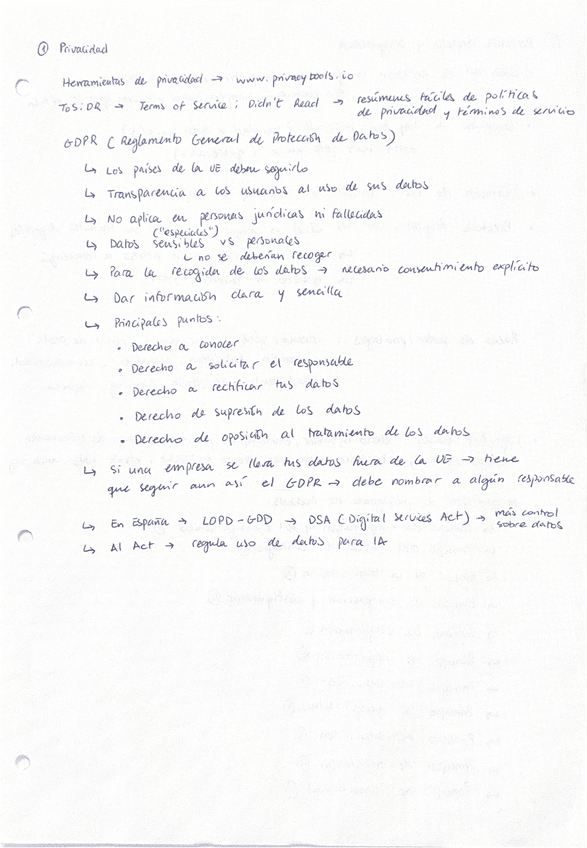 ① Privacidad
Herramientas de privacidad → www.privacytools.io
ToS;DR → Terms of Service; Didn't Read → resúmenes fáciles de políticas
de privacidad y términos de servicio
GDPR (Reglamento General de Protección de Datos)
↳ Los países de la UE deben seguirlo
↳ Transparencia a los usuarios al uso de sus datos
↳ No aplica en personas jurídicas ni fallecidas
("especiales")
↳ Datos sensibles vs personales
↳ no se deberían recoger
↳ Para la recogida de los datos → necesario consentimiento explícito
↳ Dar información clara y sencilla
↳ Principales puntos:
• Derecho a conocer
• Derecho a solicitar el responsable
• Derecho a rectificar tus datos
• Derecho de supresión de los datos
• Derecho de oposición al tratamiento de los datos
↳ Si una empresa se lleva tus datos fuera de la UE → tiene
que seguir aun así el GDPR → debe nombrar a algún responsable
↳ En España → LOPD-GDD → DSA (Digital Services Act) → más control
sobre datos
↳ AI Act → regula uso de datos para IA